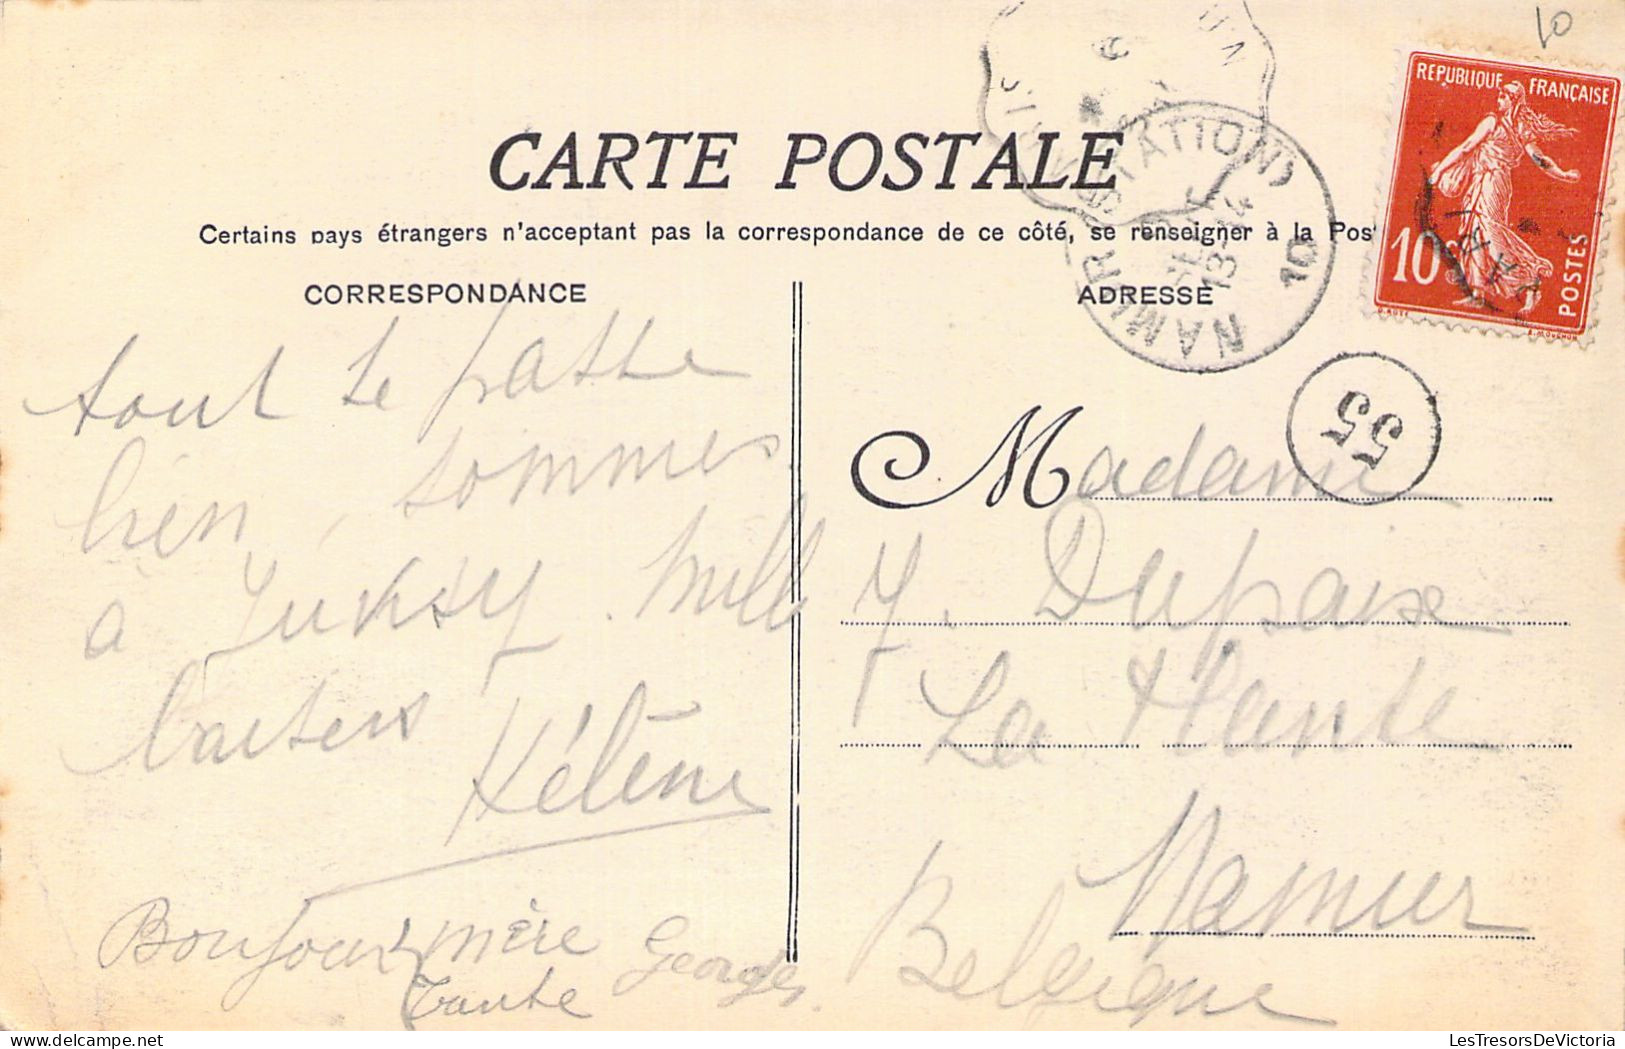 10
REPUBLIQUE FRANÇAISE
10c
POSTES
CARTE POSTALE
NAMUR (STATION)
13-14
10
Certains pays étrangers n'acceptant pas la correspondance de ce côté, se renseigner à la Pos
CORRESPONDANCE
ADRESSE
55
tout se passe
bien, sommes
à Juvisy. Mille
baisers
Hélène
Bonjour mère
Tante Georges
Madame
Y. Dupaix
La Plante
Namur
Belgique
LesTresorsDeVictoria